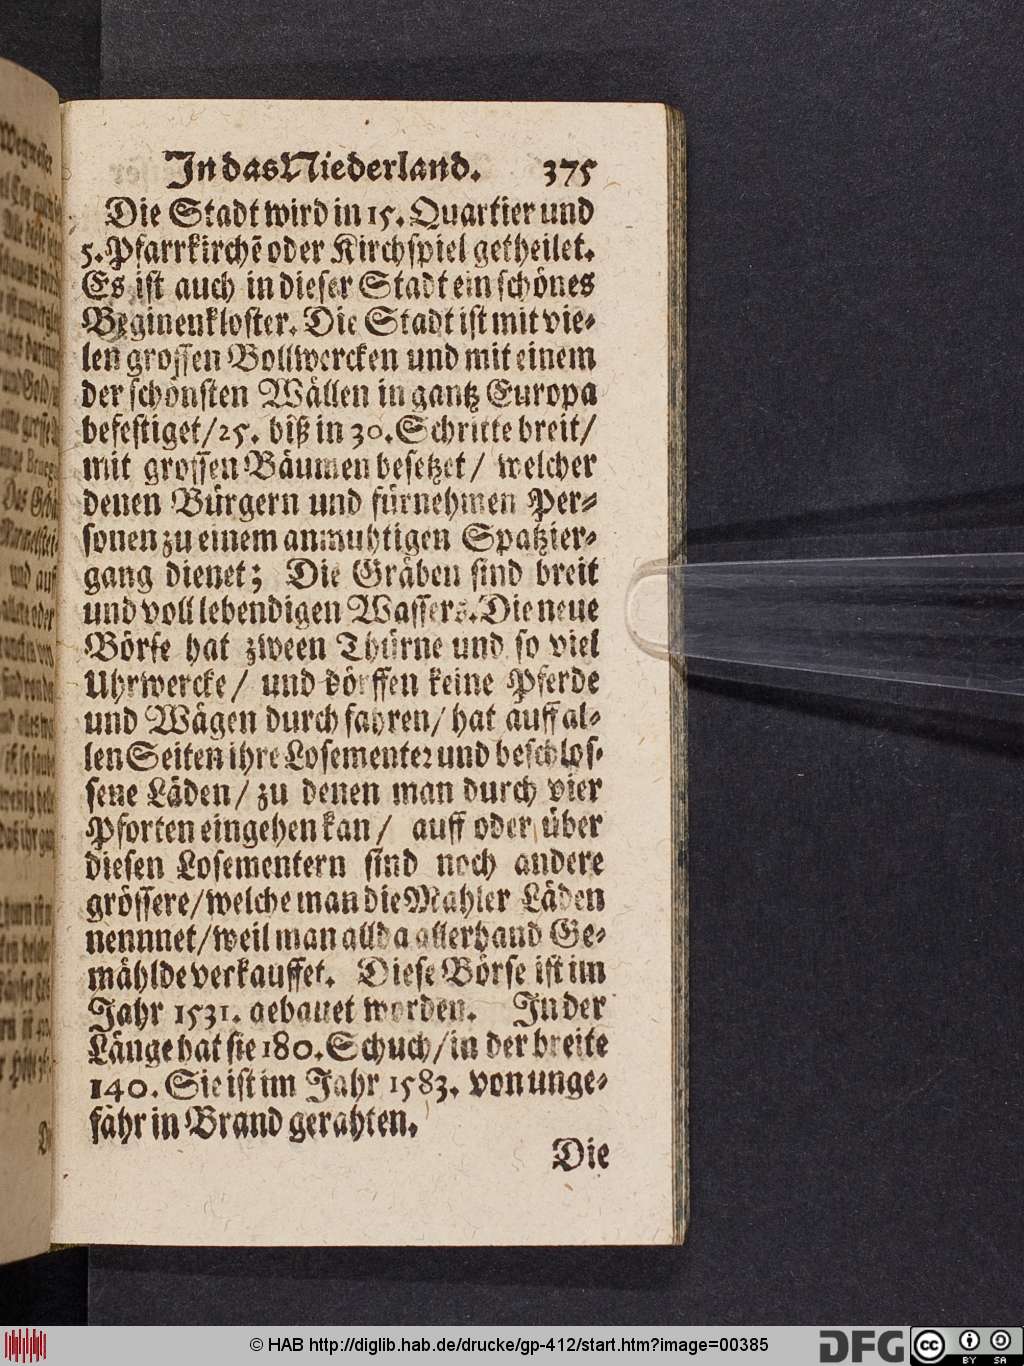 In das Niederland. 375
Die Stadt wird in 15. Quartier und
5. Pfarrkirchẽ oder Kirchspiel getheilet.
Es ist auch in dieser Stadt ein schönes
Beginenkloster. Die Stadt ist mit vie-
len grossen Bollwercken und mit einem
der schönsten Wällen in gantz Europa
befestiget/ 25. biß in 30. Schritte breit/
mit grossen Bäumen besetzet/ welcher
denen Bürgern und fürnehmen Per-
sonen zu einem anmuhtigen Spatzier-
gang dienet; Die Gräben sind breit
und voll lebendigen Wassers. Die neue
Börse hat zween Thürne und so viel
Uhrwercke/ und dörffen keine Pferde
und Wägen durch fahren/ hat auff al-
len Seiten ihre Losementer und beschlos-
sene Läden/ zu denen man durch vier
Pforten eingehen kan/ auff oder über
diesen Losementern sind noch andere
grössere/ welche man die Mahler Läden
nennnet/ weil man allda allerhand Ge-
mählde verkauffet. Diese Börse ist im
Jahr 1531. gebauet worden. In der
Länge hat sie 180. Schuch/ in der breite
140. Sie ist im Jahr 1583. von unge-
fähr in Brand gerahten.
Die
© HAB http://diglib.hab.de/drucke/gp-412/start.htm?image=00385
DFG
cc BY SA